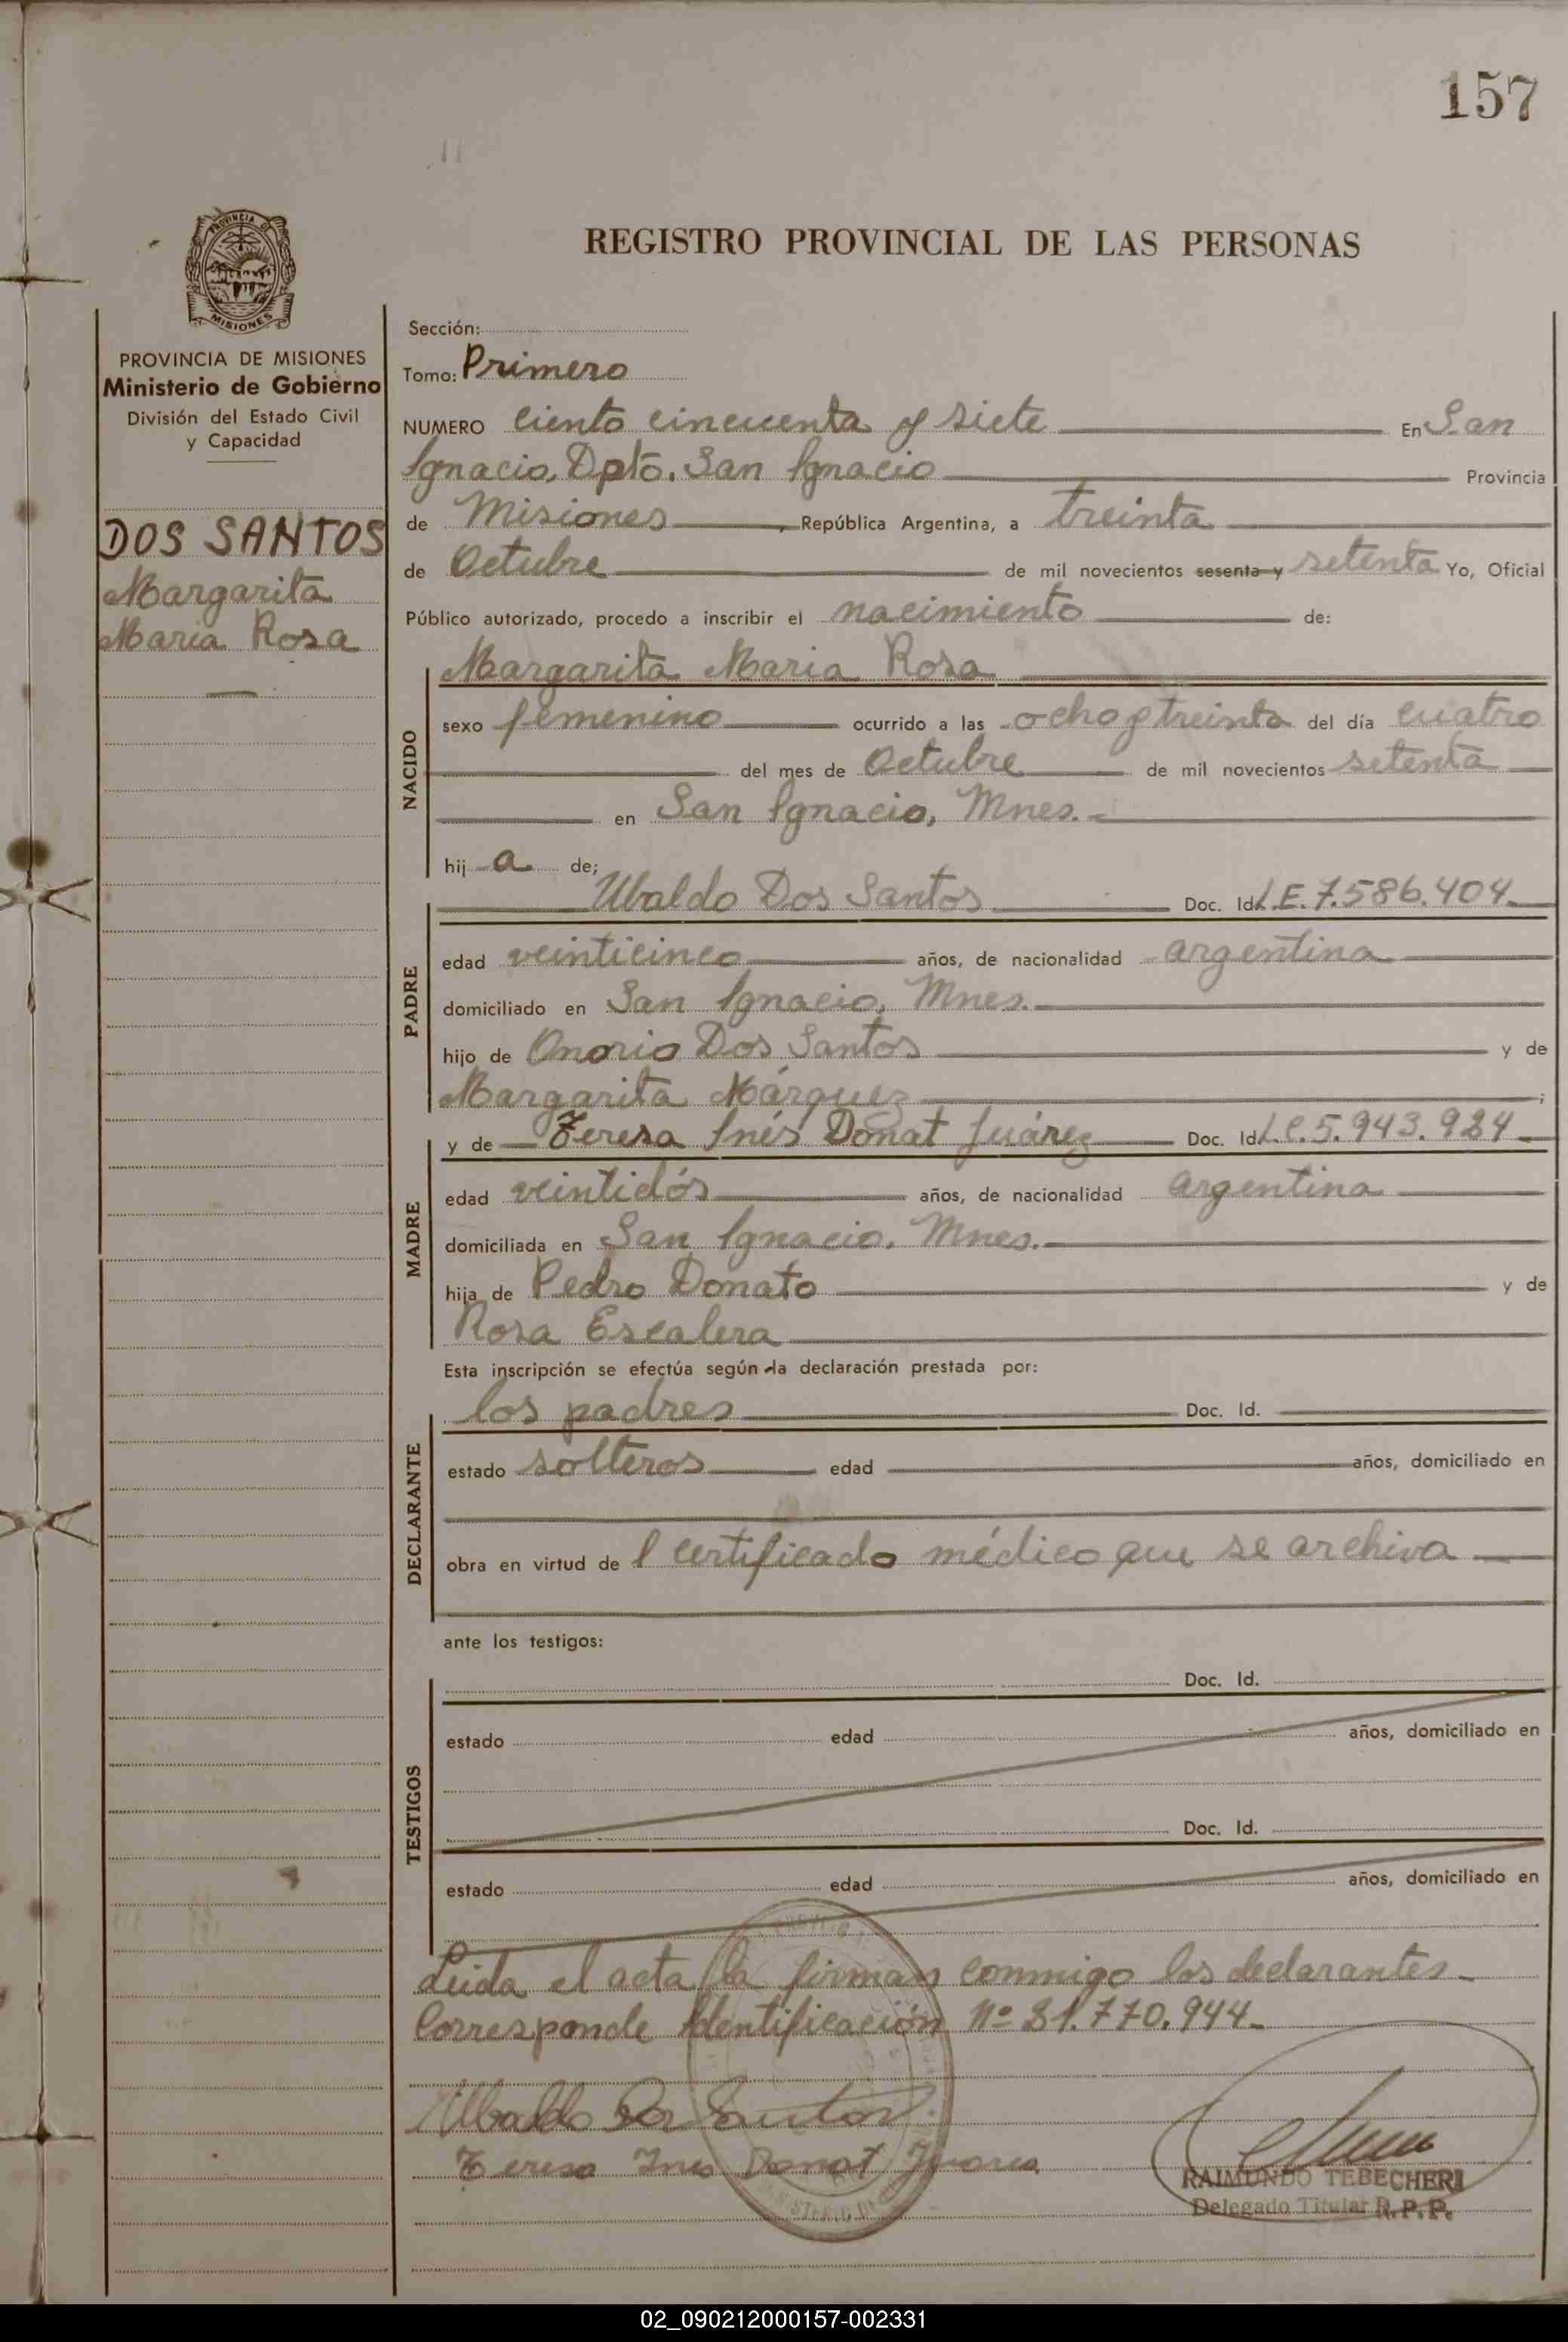 157
PROVINCIA DE
MISIONES
REGISTRO PROVINCIAL DE LAS PERSONAS
PROVINCIA DE MISIONES
Ministerio de Gobierno
División del Estado Civil
y Capacidad
DOS SANTOS
Margarita
Maria Rosa
Sección:
Tomo: Primero
NUMERO ciento cincuenta y siete En San
Ignacio, Dpto. San Ignacio Provincia
de Misiones, República Argentina, a treinta
de Octubre de mil novecientos sesenta y setenta Yo, Oficial
Público autorizado, procedo a inscribir el nacimiento de:
NACIDO
Margarita Maria Rosa
sexo femenino ocurrido a las ocho y treinta del día cuatro
del mes de Octubre de mil novecientos setenta
en San Ignacio, Mnes.-
hij a de;
PADRE
Ubaldo Dos Santos Doc. Id. L.E. 7.586.404.
edad veinticinco años, de nacionalidad argentina
domiciliado en San Ignacio, Mnes.
hijo de Onorio Dos Santos y de
Margarita Márquez;
MADRE
y de Teresa Inés Donat Juárez Doc. Id. L.C. 5.943.984
edad veintidós años, de nacionalidad argentina
domiciliada en San Ignacio, Mnes.
hija de Pedro Donato y de
Rosa Escalera
Esta inscripción se efectúa según la declaración prestada por:
DECLARANTE
los padres Doc. Id.
estado solteros edad años, domiciliado en
obra en virtud de l certificado médico que se archiva
ante los testigos:
TESTIGOS
Doc. Id.
estado edad años, domiciliado en
Doc. Id.
estado edad años, domiciliado en
Leida el acta la firman conmigo los declarantes.
Corresponde Identificación Nº 21.770.944.
Ubaldo Dos Santos
Teresa Ines Donat Juarez
RAIMUNDO TEBECHERI
Delegado Titular R.P.P.
02_090212000157-002331